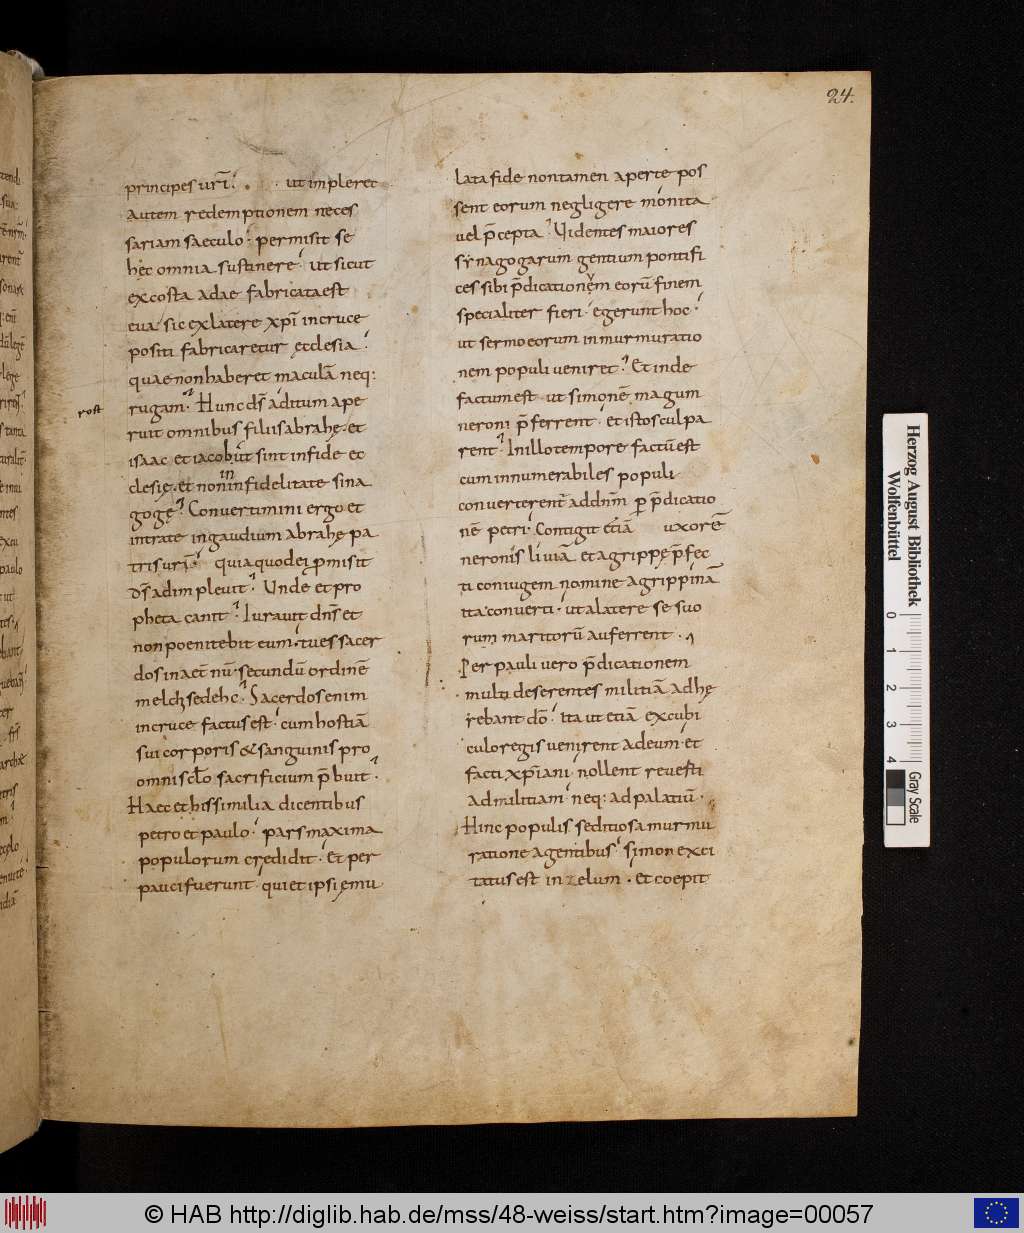 24.
principes ur̄i. ut impleret
autem redemptionem neces
sariam saeculo. permisit se
hęc omnia sustinere. Ut sicut
ex costa adae fabricata est
eua, sic ex latere xp̄i in cruce
positi fabricaretur ęcclesia.
quae non haberet maculā neq:
rost
rugam. Hunc dn̄s aditum ape
ruit omnibus filiis abrahę. et
isaac et iacob ut sint in fide ec
clesię. et non in infidelitate sina
gogę. Convertimini ergo et
intrate in gaudium abrahę pa
tris ur̄i. quia quod ei p̄misit
dn̄s adimplevit. Unde et pro
pheta canit. Iuravit dn̄s et
non poenitebit eum. tu es sacer
dos in aet̄nū. secundū ordinē
melchsedehc. Sacerdos enim
in cruce factus est. cum hostiā
sui corporis & sanguinis pro
omni scl̄o sacrificium p̄buit.
Haec et his similia dicentibus
petro et paulo. pars maxima
populorum credidit. Et per
pauci fuerunt. qui et ipsi ęmu
lata fide non tamen aperte pos
sent eorum negligere monita
uel p̄cepta. Videntes maiores
synagogarum gentium pontifi
ces sibi p̄dicationem eorū finem
specialiter fieri. egerunt hoc.
ut sermo eorum in murmuratio
nem populi veniret. Et inde
factum est ut simonē magum
neroni p̄ferrent. et istos culpa
rent. In illo tempore factū est
cum innumerabiles populi
converterent̄ ad dnm̄ ꝑ p̄dicatio
nē petri. Contigit etiā uxorē
neronis liviā et agrippę p̄fec
ti coniugem nomine agrippinā
ita converti. ut a latere se suo
rum maritorū auferrent.
Per pauli vero p̄dicationem
multi deserentes militiā adhę
rebant dō. Ita ut etiā excubi
culo regis venirent ad eum. et
facti xp̄iani. nollent reverti
ad militiam. neq: ad palatiū.
Hinc populis seditiosa murmu
ratione agentibus. simon exci
tatus est in zelum. et coepit
Herzog August Bibliothek
Wolfenbüttel
0 1 2 3 4
Gray Scale
© HAB http://diglib.hab.de/mss/48-weiss/start.htm?image=00057